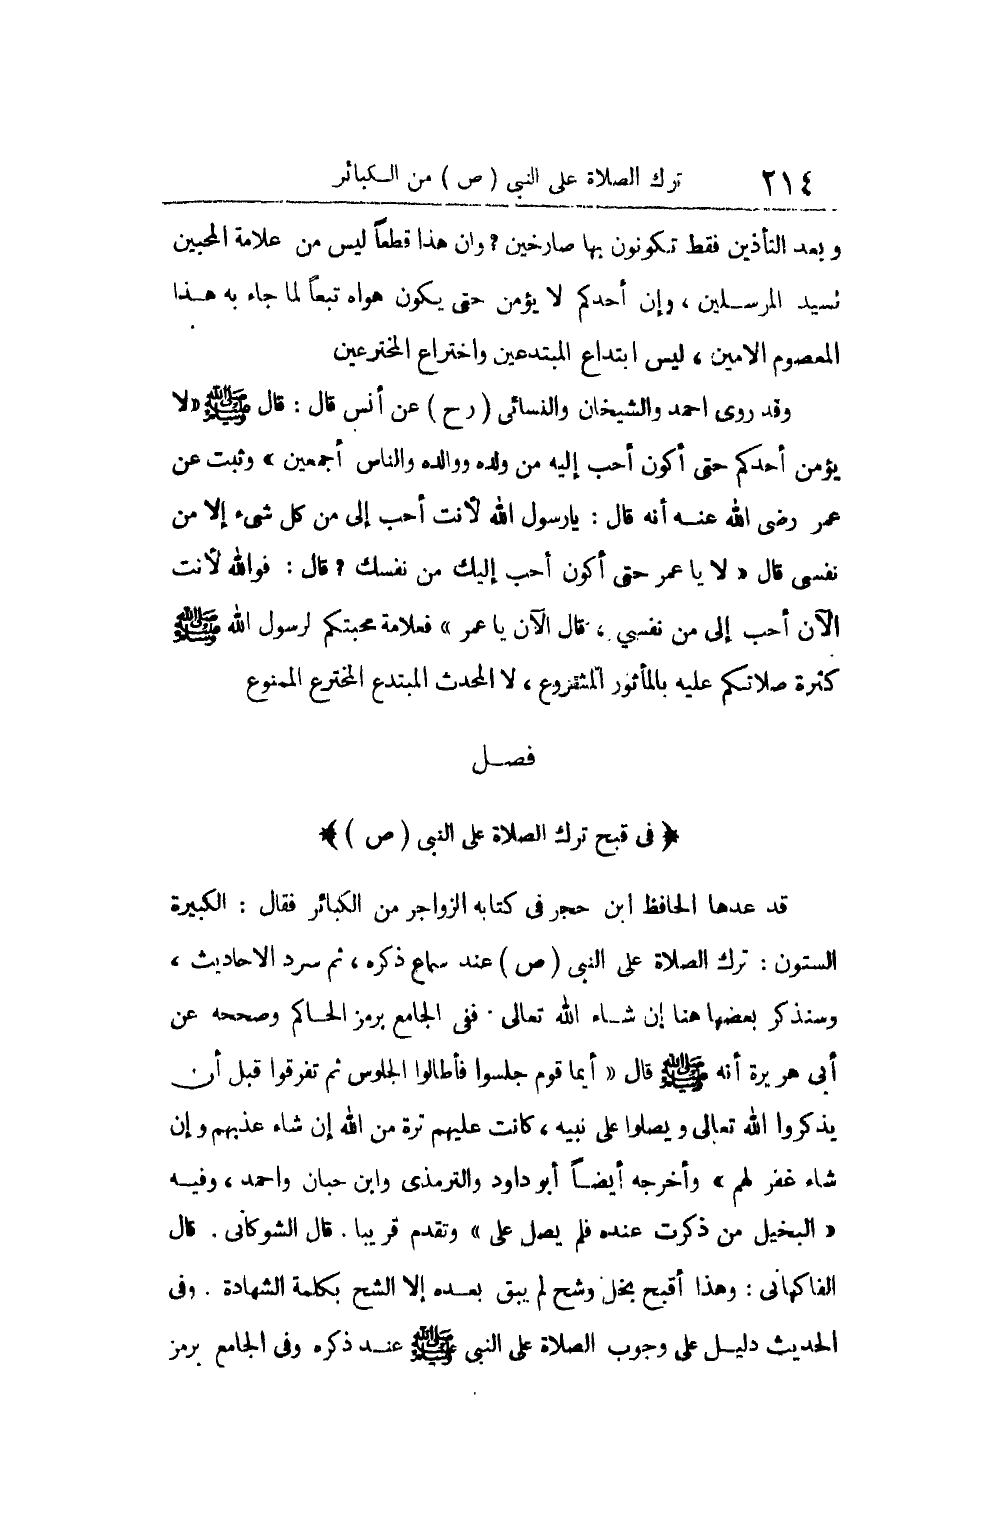 ٢١٤ ترك الصلاة على النبى ( ص ) من الكبائر
وبعد التأذين فقط تكونون بها صارخين ? وان هذا قطعاً ليس من علامة المحبين
لسيد المرسلين ، وإن أحدكم لا يؤمن حتى يكون هواه تبعاً لما جاء به هذا
المعصوم الامين ، ليس ابتداع المبتدعين واختراع المخترعين
وقد روى احمد والشيخان والنسائى ( رح ) عن أنس قال : قال ﷺ «لا
يؤمن أحدكم حتى أكون أحب إليه من ولده ووالده والناس أجمعين » وثبت عن
عمر رضى الله عنه أنه قال : يارسول الله لأنت أحب إلى من كل شىء إلا من
نفسى قال « لا يا عمر حتى أكون أحب إليك من نفسك ? قال : فوالله لأنت
الآن أحب إلى من نفسي ، قال الآن يا عمر » فعلامة محبتكم لرسول الله ﷺ
كثرة صلاتكم عليه بالمأثور المشروع ، لا المحدث المبتدع المخترع الممنوع
فصل
﴿ فى قبح ترك الصلاة على النبى ( ص ) ﴾
قد عدها الحافظ ابن حجر فى كتابه الزواجر من الكبائر فقال : الكبيرة
الستون : ترك الصلاة على النبى ( ص ) عند سماع ذكره ، ثم سرد الاحاديث ،
وسنذكر بعضها هنا إن شاء الله تعالى . ففى الجامع برمز الحاكم وصححه عن
أبى هريرة أنه ﷺ قال « أيما قوم جلسوا فأطالوا الجلوس ثم تفرقوا قبل أن
يذكروا الله تعالى ويصلوا على نبيه ، كانت عليهم ترة من الله إن شاء عذبهم وإن
شاء غفر لهم » وأخرجه أيضاً أبو داود والترمذى وابن حبان واحمد ، وفيه
« البخيل من ذكرت عنده فلم يصل على » وتقدم قريبا . قال الشوكانى . قال
الفاكهانى : وهذا أقبح بخل وشح لم يبق بعده إلا الشح بكلمة الشهادة . وفى
الحديث دليل على وجوب الصلاة على النبى ﷺ عند ذكره وفى الجامع برمز